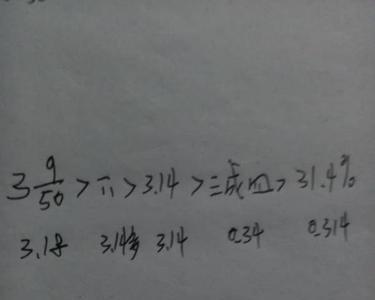 3 9/50 > π > 3.14 > 三成四 > 31.4%
3.18 3.14多 3.14 0.34 0.314